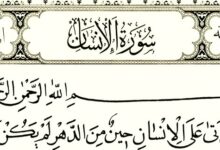 سُورَةُ الْإِنسَانِ
بِسْمِ اللَّهِ الرَّحْمَٰنِ
عَلَى الْإِنسَانِ حِينٌ مِّنَ الدَّهْرِ لَمْ يَكُن